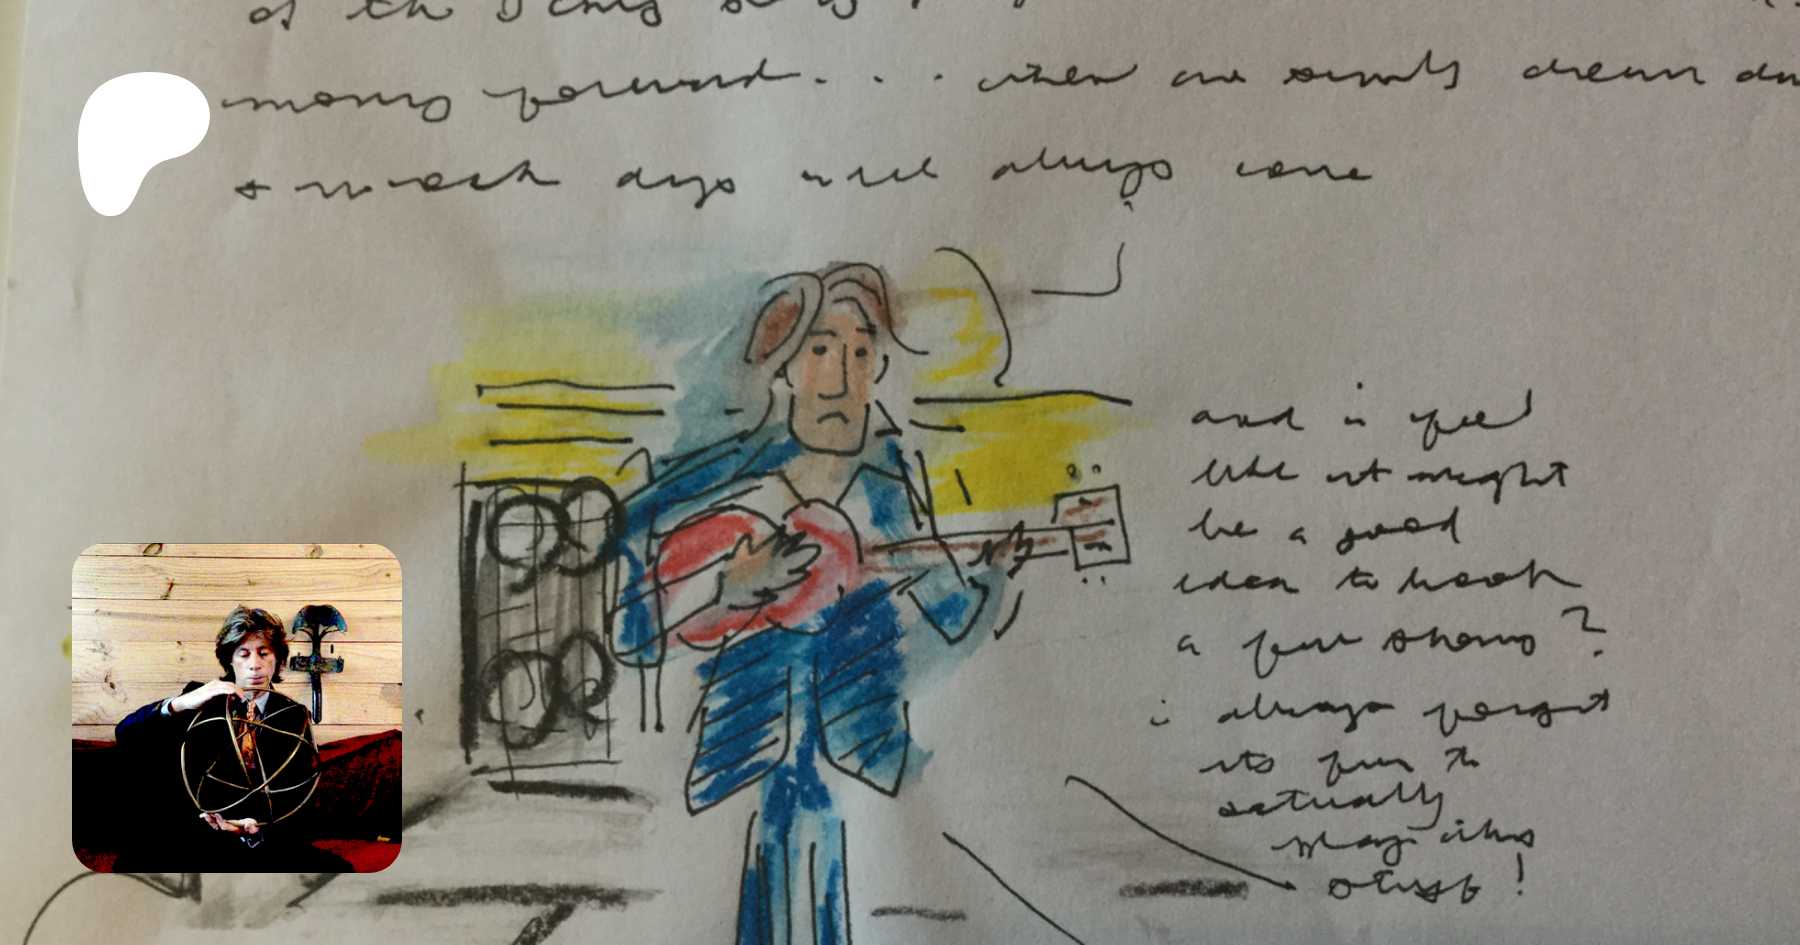 of the
moving forward... when one simply dream
days will always come
and i feel
like it might
be a good
idea to book
a few shows?
i always forget
its fun to
actually
play this
stuff!